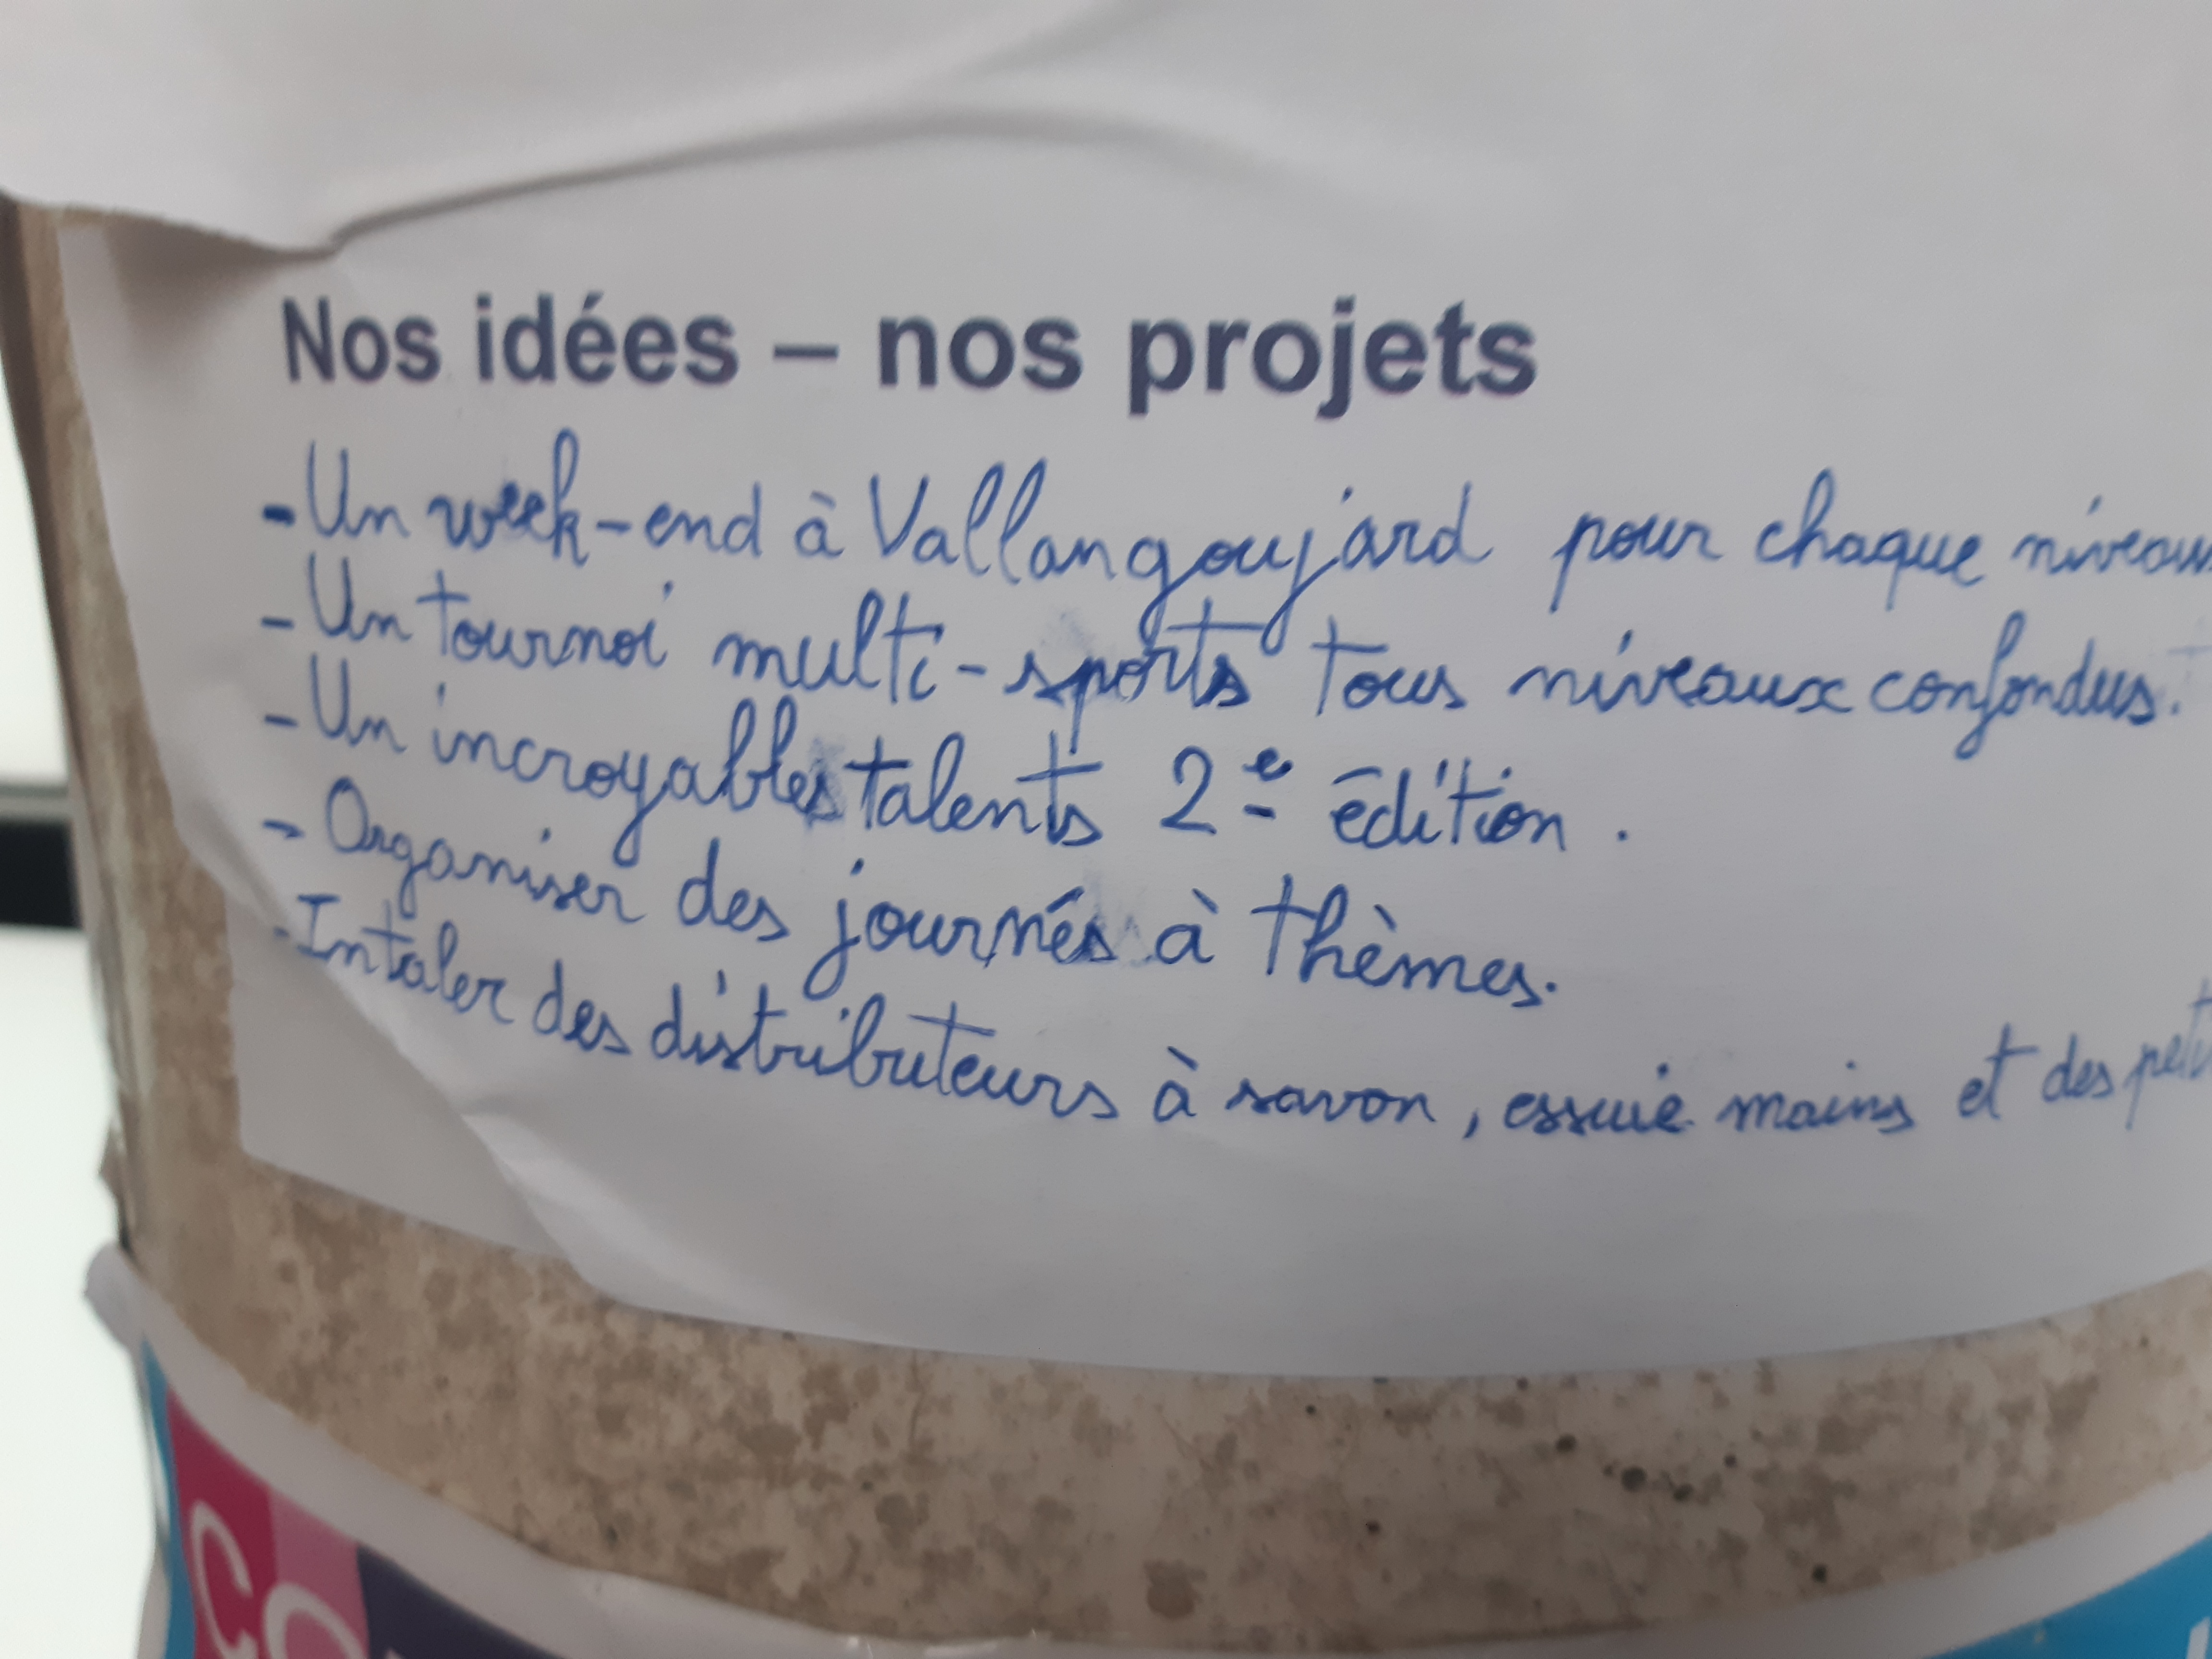 Nos idées – nos projets
- Un week-end à Vallangoujard pour chaque niveau
- Un tournoi multi-sports tous niveaux confondus.
- Un incroyables talents 2e édition.
- Organiser des journés à thèmes.
- Intaler des distributeurs à savon, essuie mains et des